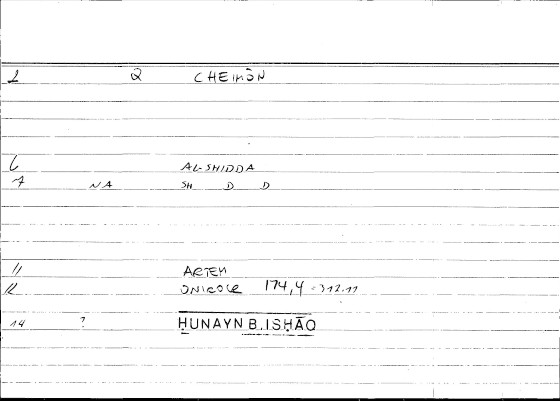 1 Q CHEIMÒN
6 AL-SHIDDA
7 NA SH D D
11 ARTEM
12 ONIROCR 174,4 = 312.11
14 ? ḤUNAYN B. ISḤĀQ